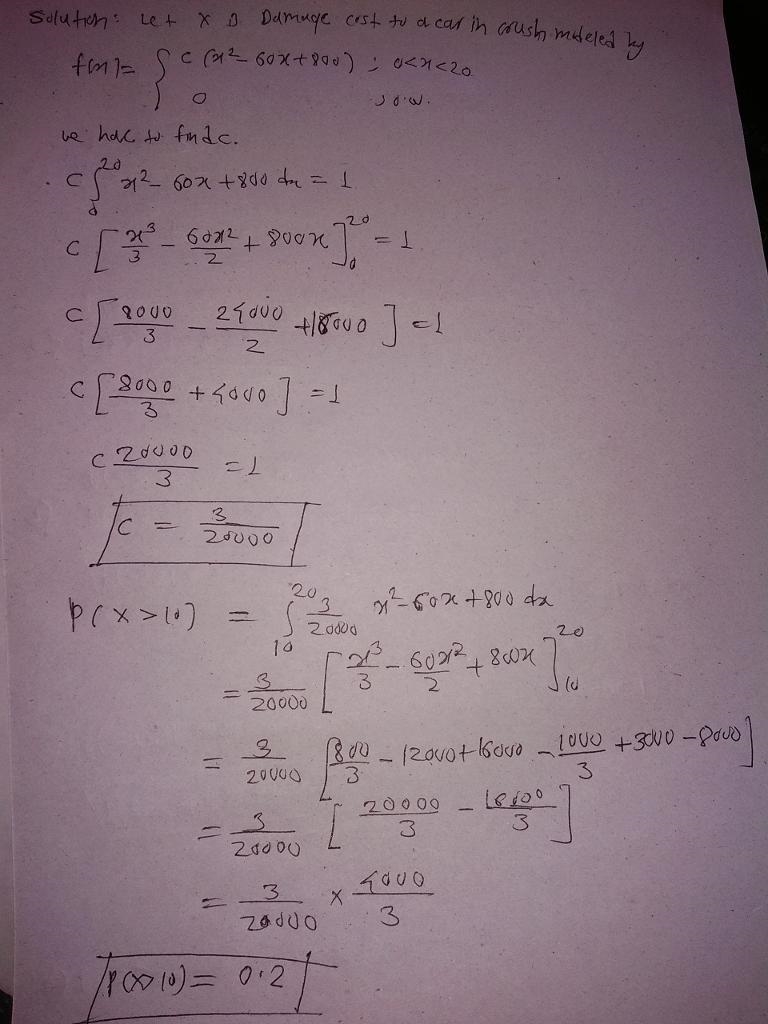 Solution: Let X is Damage cost to a car in crush modeled by
f(x) = { c (x² - 60x + 800) ; 0<x<20
0 ; o.w.
we hae to find c.
c ∫₀²⁰ x² - 60x + 800 dx = 1
c [ x³/3 - 60x²/2 + 800x ]₀²⁰ = 1
c [ 8000/3 - 24000/2 + 16000 ] = 1
c [ 8000/3 + 4000 ] = 1
c 20000/3 = 1
c = 3/20000
P(X>10) = ∫₁₀²⁰ 3/20000 x² - 60x + 800 dx
= 3/20000 [ x³/3 - 60x²/2 + 800x ]₁₀²⁰
= 3/20000 [ 800/3 - 12000 + 16000 - 1000/3 + 3000 - 8000 ]
= 3/20000 [ 20000/3 - 16000/3 ]
= 3/20000 × 4000/3
P(X>10) = 0.2